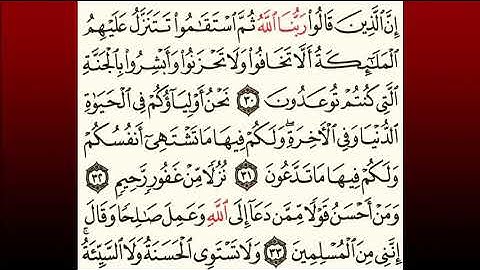 إِنَّ ٱلَّذِينَ قَالُوا۟ رَبُّنَا ٱللَّهُ ثُمَّ ٱسْتَقَٰمُوا۟ تَتَنَزَّلُ عَلَيْهِمُ
ٱلْمَلَٰٓئِكَةُ أَلَّا تَخَافُوا۟ وَلَا تَحْزَنُوا۟ وَأَبْشِرُوا۟ بِٱلْجَنَّةِ
ٱلَّتِى كُنتُمْ تُوعَدُونَ ٣٠ نَحْنُ أَوْلِيَآؤُكُمْ فِى ٱلْحَيَوٰةِ
ٱلدُّنْيَا وَفِى ٱلْءَاخِرَةِ ۖ وَلَكُمْ فِيهَا مَا تَشْتَهِىٓ أَنفُسُكُمْ
وَلَكُمْ فِيهَا مَا تَدَّعُونَ ٣١ نُزُلًا مِّنْ غَفُورٍ رَّحِيمٍ ٣٢
وَمَنْ أَحْسَنُ قَوْلًا مِّمَّن دَعَآ إِلَى ٱللَّهِ وَعَمِلَ صَٰلِحًا وَقَالَ
إِنَّنِى مِنَ ٱلْمُسْلِمِينَ ٣٣ وَلَا تَسْتَوِى ٱلْحَسَنَةُ وَلَا ٱلسَّيِّئَةُ ۚ